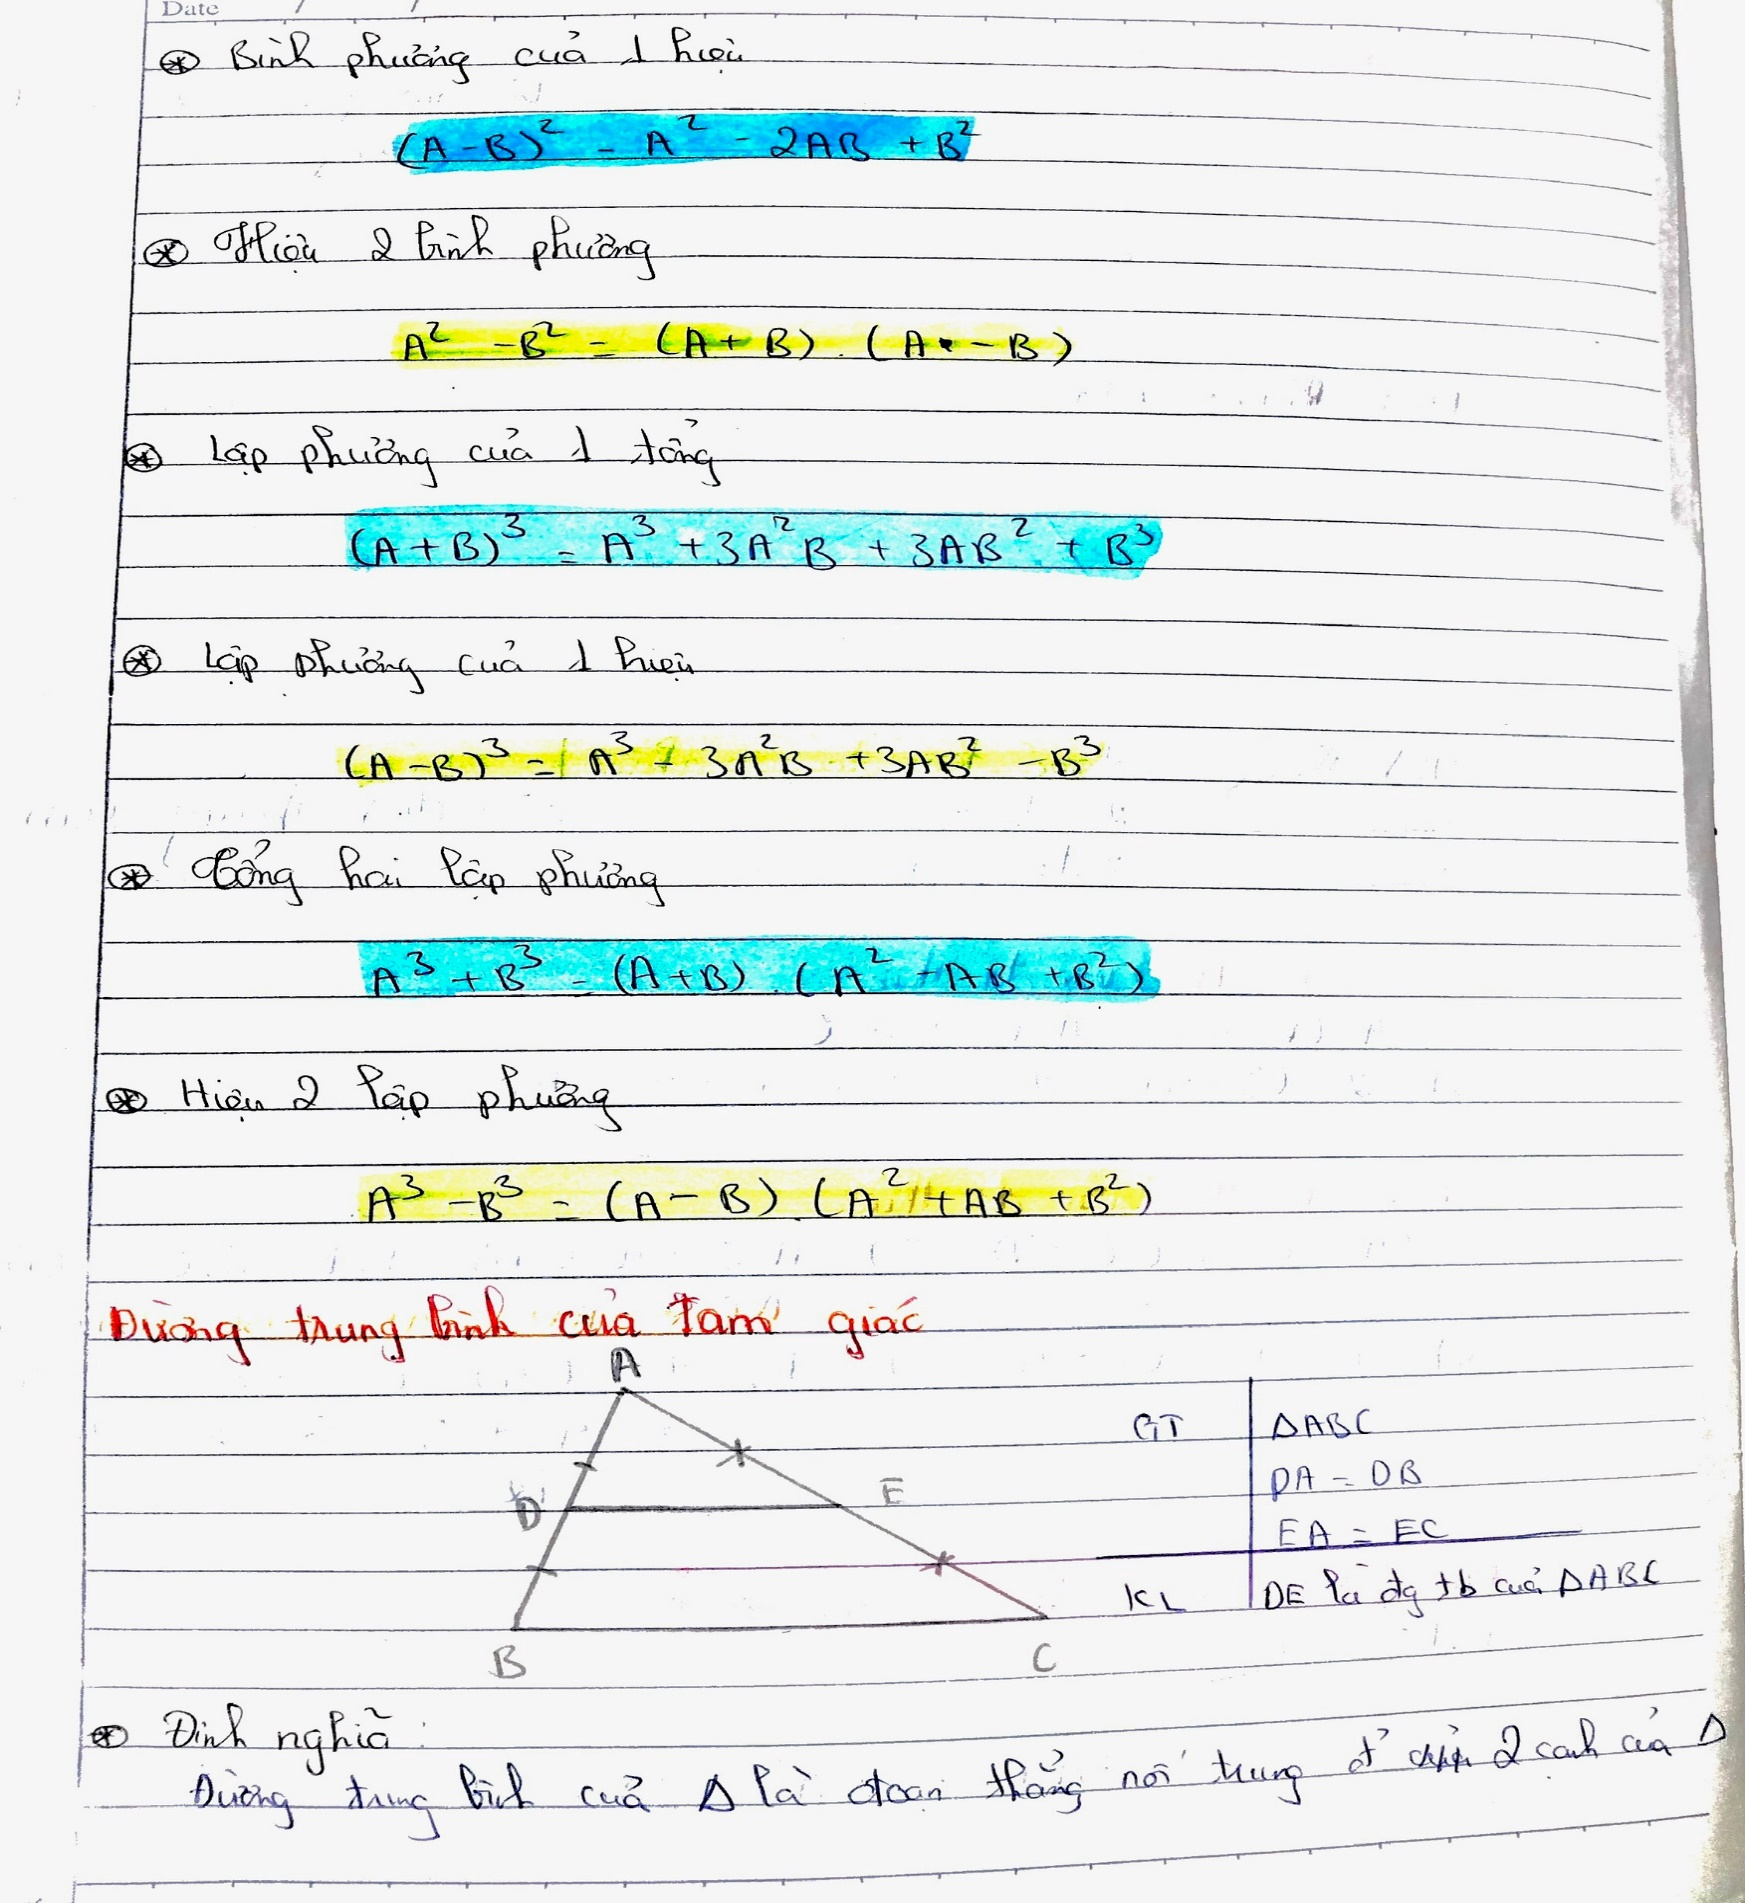 Date / /
⊛ Bình phương của 1 hiệu
(A-B)² = A² - 2AB + B²
⊛ Hiệu 2 bình phương
A² - B² = (A + B) . (A - B)
⊛ Lập phương của 1 tổng
(A + B)³ = A³ + 3A²B + 3AB² + B³
⊛ Lập phương của 1 hiệu
(A - B)³ = A³ - 3A²B + 3AB² - B³
⊛ Tổng hai lập phương
A³ + B³ = (A + B) . (A² - AB + B²)
⊛ Hiệu 2 lập phương
A³ - B³ = (A - B) . (A² + AB + B²)
Đường trung bình của tam giác
A
GT ΔABC
DA = DB
D E
EA = EC
KL DE là đg tb của ΔABC
B C
⊛ Định nghĩa :
Đường trung bình của Δ là đoạn thẳng nối trung đ' 2 cạnh của Δ